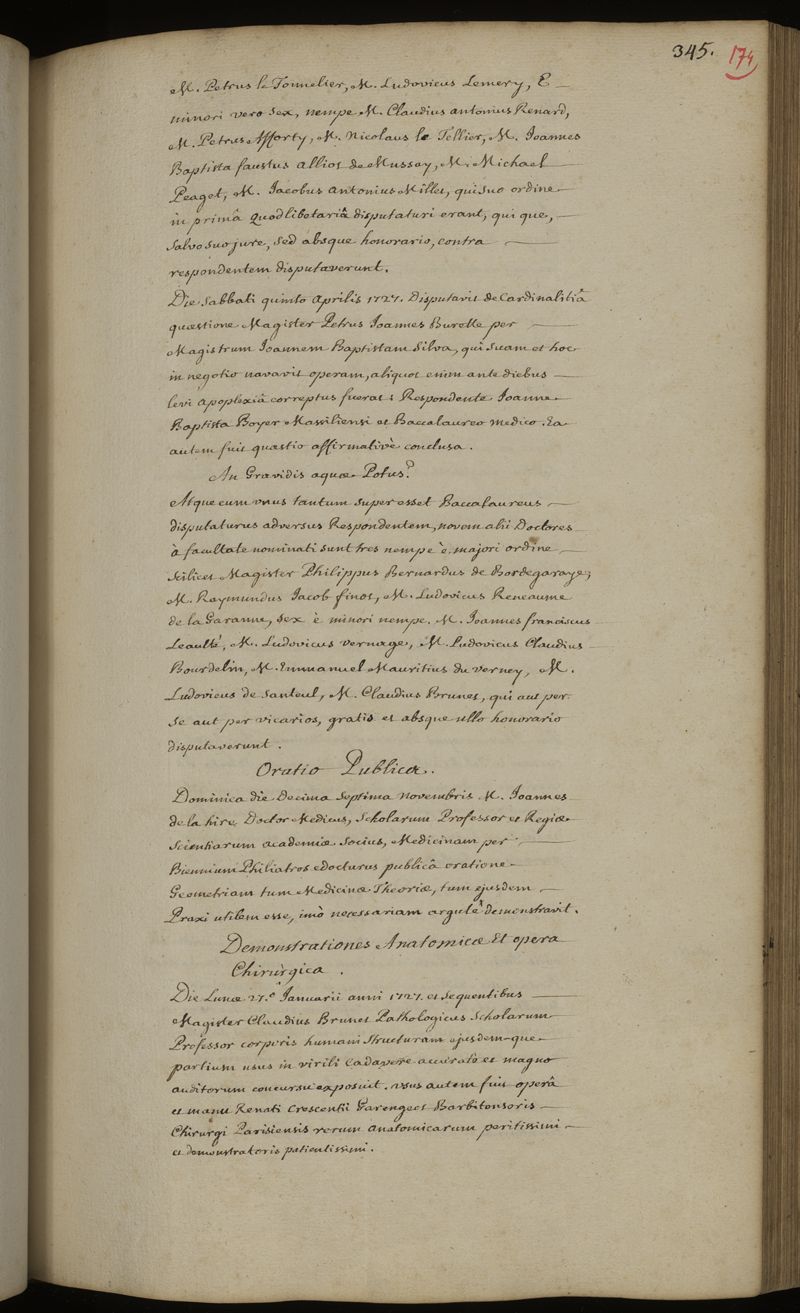 345. 174
M. Petrus le Tonnelier, M. Ludovicus Lemery, E
minori vero sex, nempe M. Claudius antonius Renard,
M. Petrus Afforty, M. Nicolaus le Tellier, M. Joannes
Baptista faustus alliot de Mussey, M. Michael
Peaget, M. Jacobus antonius Millet, qui suo ordine
in primâ quodlibetariâ disputaturi erant, qui que,
salvo suo jure, sed absque honorario, contra
respondentem disputaverunt.
Die sabbati quinto aprilis 1727. Disputavit de Cardinalitiâ
quæstione Magister Petrus Joannes Burette per
Magistrum Joannem Baptistam Silva, qui suam et hoc
in negotio navavit operam, aliquot enim ante diebus
levi apoplexiâ correptus fuerat; Respondente Joanne
Baptista Boyer Massiliensi et Baccalaureo medico. Ea
autem fuit quæstio affirmativè conclusa.
An Gravidis aquæ Potus?
Atque cum unus tantum superesset Baccalaureus
disputaturus adversus Respondentem, novem alii Doctores
à facultate nominati sunt tres nempe è majori ordine
scilicet Magister Philippus Bernardus de Bordegaraye,
M. Raymundus Jacob finot, M. Ludovicus Reneaume
de la Garanne, sex è minori nempe. M. Joannes franciscus
Leaulté, M. Ludovicus vernage, M. Ludovicus Claudius
Bourdelin, M. Emmanuel Mauritius du verney, M.
Ludovicus de Santeul, M. Claudius Brunet, qui aut per
se aut per vicarios, gratis et absque ullo honorario
disputaverunt.
Oratio Publica.
Dominica die decima septima novembris M. Joannes
de la hire Doctor Medicus, Scholarum Professor et Regiæ
scientiarum academiæ socius, Medicinam per
Biennium Philiatros edocturus publicâ oratione
Geometriam tum Medicinæ Theoriæ, tum ejusdem
Praxi utilem esse, imò necessariam argutè demonstravit.
Demonstrationes Anatomicæ Et opera
Chirurgica.
Die Lunæ 27.e Januarii anni 1727. et sequentibus
Magister Claudius Brunet Pathologicus Scholarum
Professor corporis humani structuram ejusdem-que
partium usus in virili Cadavere accurate et magno
auditorum concursu exposuit. usus autem fuit operâ
et manu Renati Crescentii Garengeot Barbitonsoris
Chirurgi Parisiensis rerum anatomicarum peritissimi
et demonstratoris patientissimi.